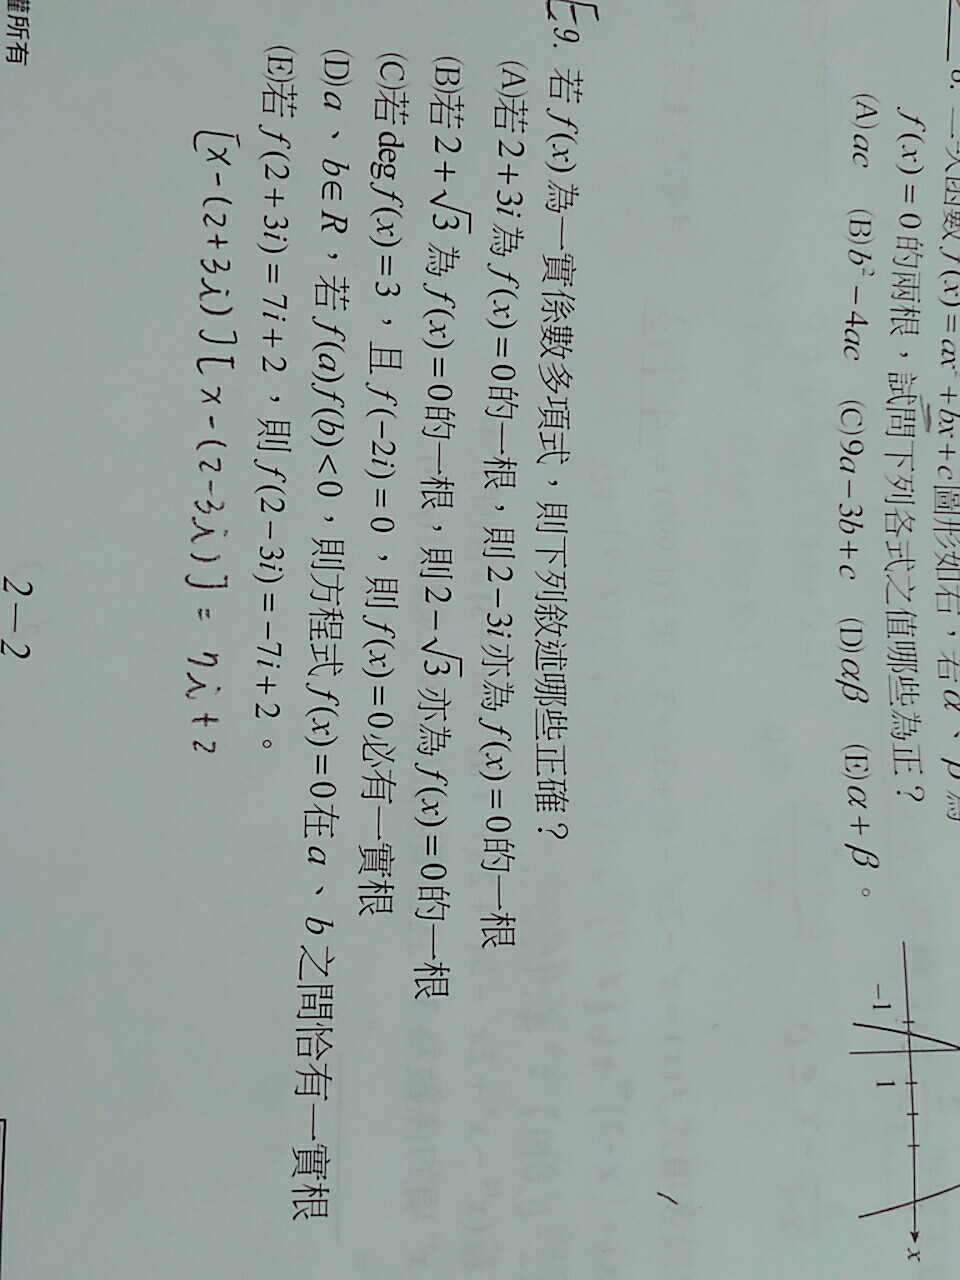 二次函數f(x)=ax²+bx+c圖形如右,若α、β為
f(x)=0的兩根,試問下列各式之值哪些為正?
(A)ac (B)b²-4ac (C)9a-3b+c (D)αβ (E)α+β。
-1 1 x
9. 若f(x)為一實係數多項式,則下列敘述哪些正確?
(A)若2+3i為f(x)=0的一根,則2-3i亦為f(x)=0的一根
(B)若2+√3為f(x)=0的一根,則2-√3亦為f(x)=0的一根
(C)若degf(x)=3,且f(-2i)=0,則f(x)=0必有一實根
(D)a、b∈R,若f(a)f(b)<0,則方程式f(x)=0在a、b之間恰有一實根
(E)若f(2+3i)=7i+2,則f(2-3i)=-7i+2。
[x-(2+3i)][x-(2-3i)]=7i+2
權所有
2-2